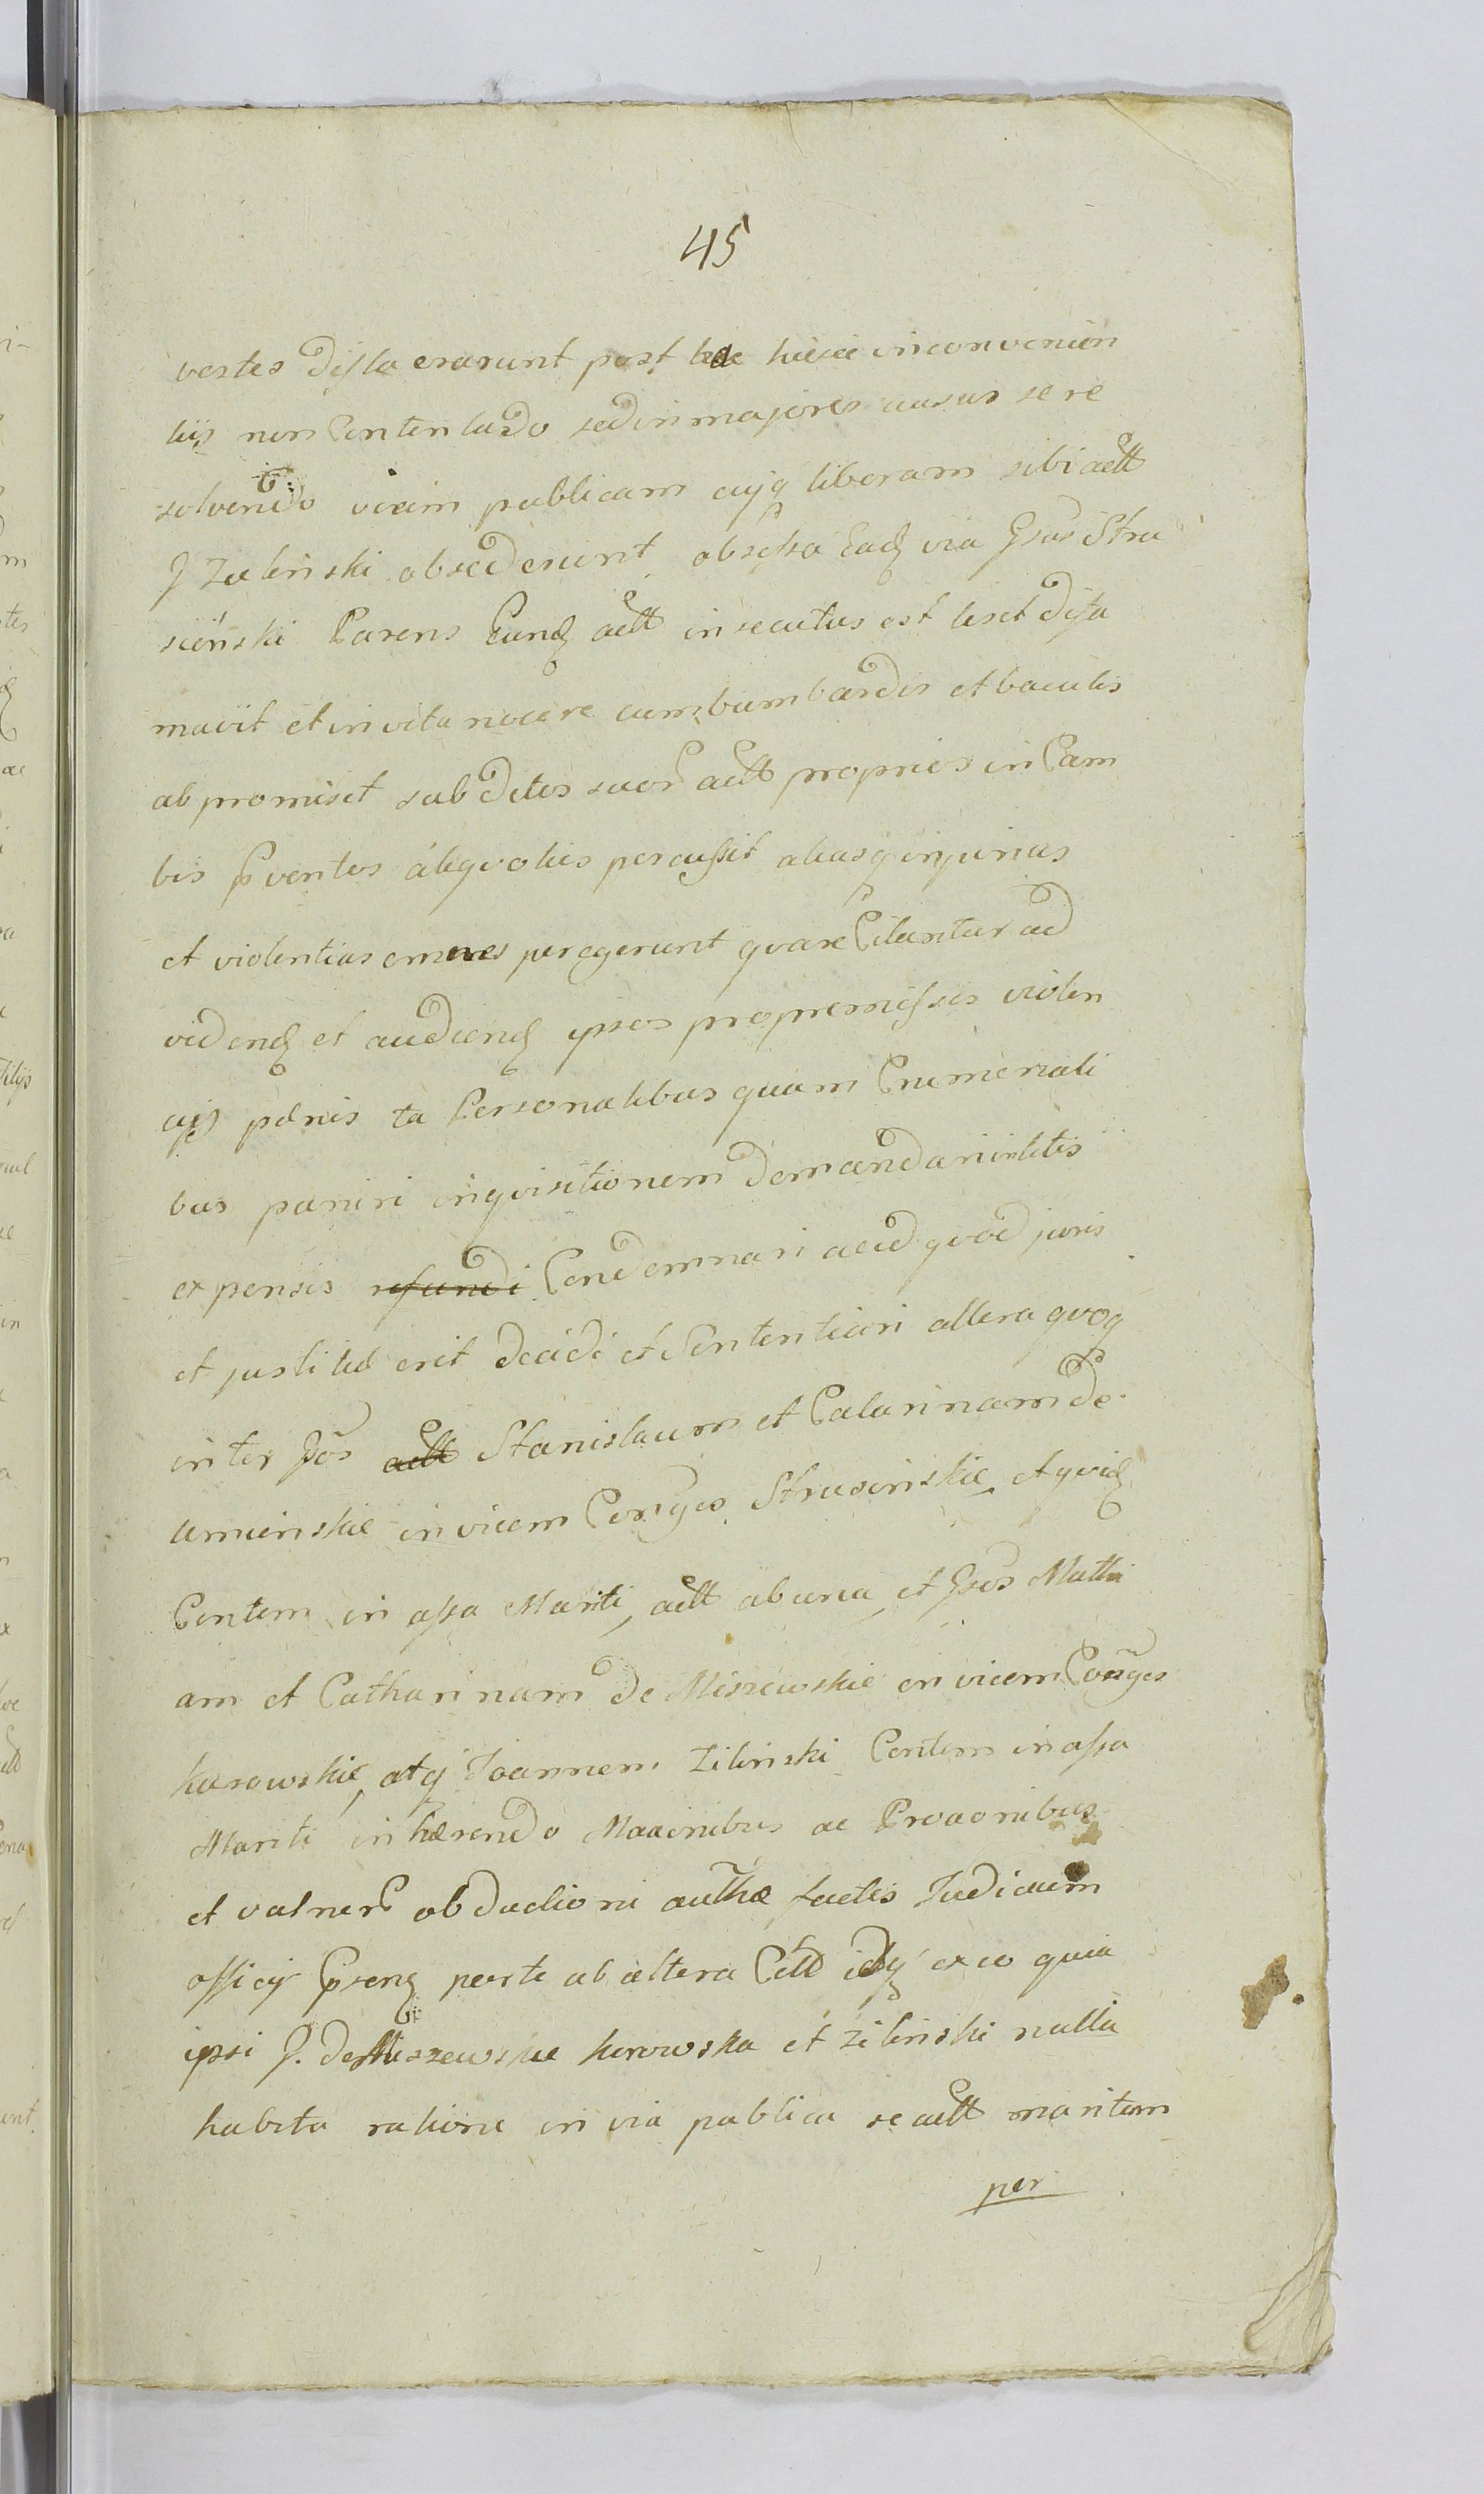 45
vestes dislaerarunt post hiisce inconvenien
tiis non Contentando sed in majores ausus se re
solvendo viam publicam cujq liberam sibi actt
J Zielinski obsederunt obsessa Eadq via Gsus Stru
sienski Parens Eundq actt insecutus est lesit diffa
mavit et in vita nocere cum bumbardis et baculis
ab promisit subditos suor actt proprios in Cam
bis Eventos aliqvoties percussit aliasq injurias
et violentias omnes peregerunt qvare Citantur ad
videndq et audiendq ipsos pro premissis violen
cijs pœnis ta Personalibus quam Crimenali
bus puniri inqvisitionem demandari in litis
expensis refundi Condemnari acid qvod juris
et justitiæ erit decidi et Sententiari altera qvoq
inter Gos actt Stanislaum et Catarinam de
umienskie invicem Conjges Strusinskie et qvidq
Contem in assa Mariti, actt ab una, et Gsos Mathi
am et Catharinam de Miszewskie invicem Conjges
kurowskie, atq Joannem Zilinski Contem in assa
Mariti inhærendo Maaonibus ac Proaonibus
et vulner obductioni authæ factis Judicium
officij Gseng parte ab altera Citt idq ex eo quia
ipsi J. de Miszewskie kurowska et Zilinski nulla
habita ratione in via publica se actt maritum
per